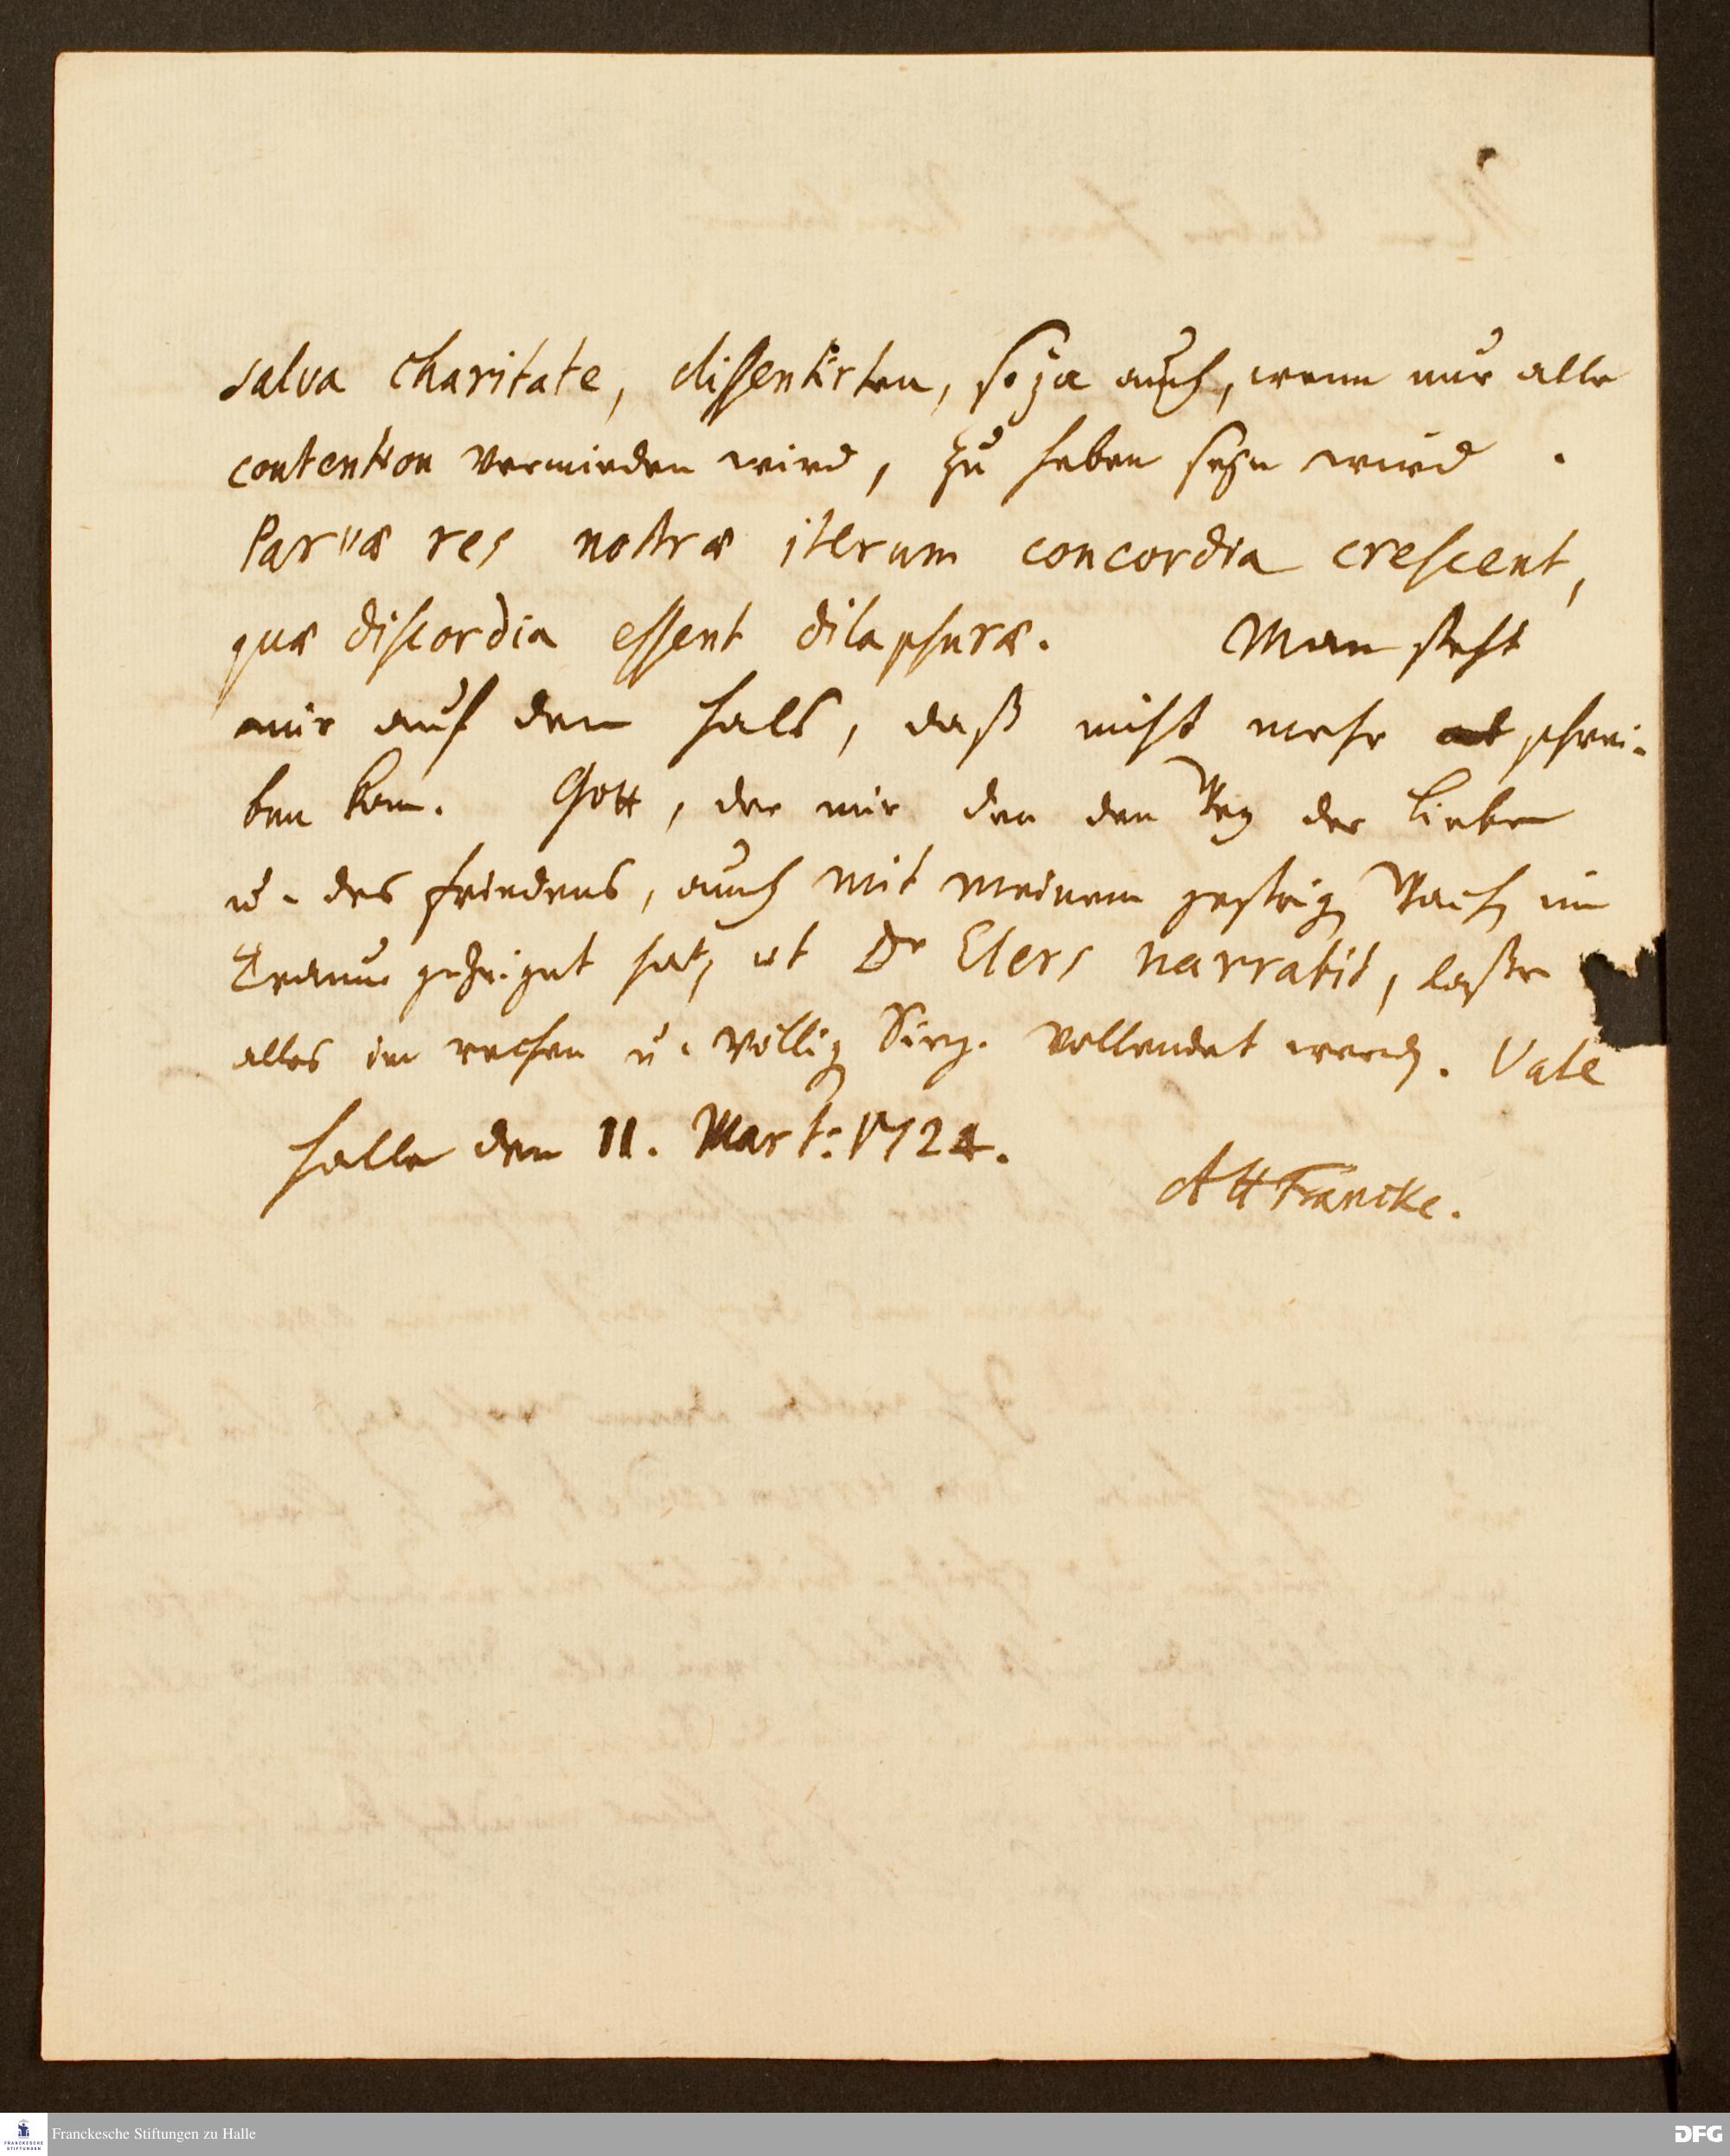 salva charitate, dissentirten, so ja auch, wenn nur alle
contention vermieden wird, zu heben seyn wird.
Parvæ res nostræ iterum concordia crescent,
quæ discordia essent dilapsuræ. Man steht
mir auf dem Hals, daß nicht mehr schrei-
ben kan. Gott, der mir den den Weg der Liebe
u. des Friedens, auch mit meinem gestrig
Traum gezeiget hat, ut Dr Elers narrabit, laße
alles im rechten u. völlig Sieg. vollendet werden. Vale
Halle den 11. Mart: 1724.
AHFrancke.
Franckesche Stiftungen zu Halle
FRANCKESCHE
STIFTUNGEN
DFG